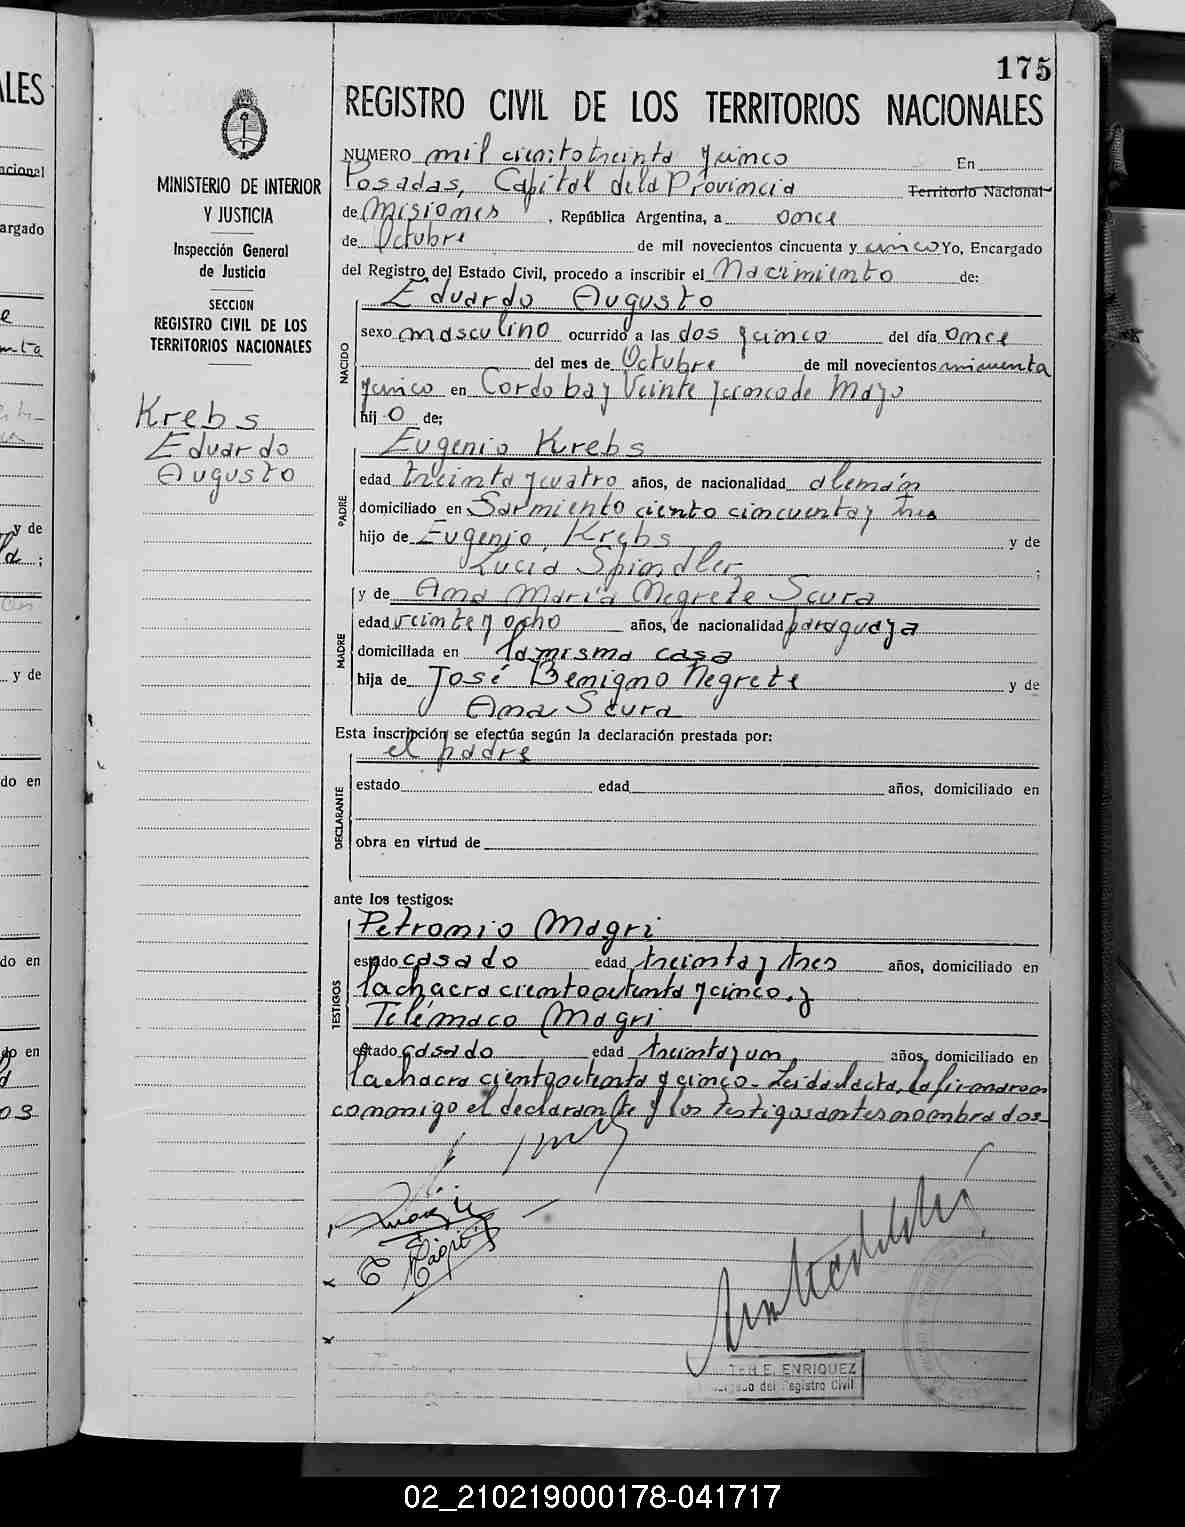 175
REGISTRO CIVIL DE LOS TERRITORIOS NACIONALES
MINISTERIO DE INTERIOR
Y JUSTICIA
Inspección General
de Justicia
SECCION
REGISTRO CIVIL DE LOS
TERRITORIOS NACIONALES
Krebs
Eduardo
Augusto
NUMERO mil ciento treinta y cinco En
Posadas, Capital de la Provincia Territorio Nacional
de Misiones, República Argentina, a once
de Octubre de mil novecientos cincuenta y cinco Yo, Encargado
del Registro del Estado Civil, procedo a inscribir el Nacimiento de:
NACIDO
Eduardo Augusto
sexo masculino ocurrido a las dos y cinco del día once
del mes de Octubre de mil novecientos cincuenta
y cinco en Cordoba y Veinte y cinco de Mayo
hijo de;
PADRE
Eugenio Krebs
edad treinta y cuatro años, de nacionalidad alemán
domiciliado en Sarmiento ciento cincuenta y tres
hijo de Eugenio Krebs y de
Lucia Spindler ;
MADRE
y de Ana María Negrete Scura
edad veinte y ocho años, de nacionalidad paraguaya
domiciliada en la misma casa
hija de José Benigno Negrete y de
Ana Scura
Esta inscripción se efectúa según la declaración prestada por:
DECLARANTE
el padre
estado edad años, domiciliado en
obra en virtud de
ante los testigos:
TESTIGOS
Petronio Magri
estado casado edad treinta y tres años, domiciliado en
la chacra ciento ochenta y cinco. y
Telémaco Magri
estado casado edad treinta y un años, domiciliado en
la chacra ciento ochenta y cinco - Leida el acta, la firmaron
conmigo el declarante y los testigos antes nombrados-
E. ENRIQUEZ
del Registro Civil
02_210219000178-041717